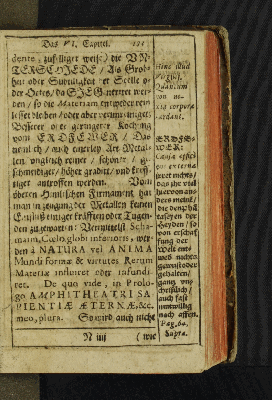 Das VI. Capitel.
dente, zufälliger weise) die UN-
TERSCHIEDE / Als Grob-
heit oder Subtiligkeit der Stelle o-
der Ortes, da SIE Generirt wer-
den / so die Materiam entweder rein
lesset bleiben / oder aber verunreiniget:
Besserer oder geringerer Kochung
vom ERDFEWER / Das
nemlich / auch einerley Art Metal-
len ungleich reiner / schöner / ge-
schmeidiger / höher gradirt / und kreff-
tiger antroffen werden. Vom
öberen Himlischen Firmament hat
man in zeugung der Metallen keinen
Einfluß einiger kräfften oder Tugen-
den zu gewarten: Vermittelst Scha-
maim, Coelo globi inferioris, wer-
den à NATURA vel ANIMA
Mundi formæ & virtutes Rerum
Materiæ influiret oder infundi-
ret. De quo vide, in Prolo-
go AMPHITHEATRI SA-
PIENTIÆ ÆTERNÆ, &c.
meo, plura. So wird auch nicht
N iiij (wie
Hinc illud
Virgilij,
Quantùm
non no-
xia corpora
tardant.
ERDFE-
WER:
Causa effici-
ens externa
iher mehr /
das ihr viel
hiervon an-
ders meint /
die den
der
Heyden / so
von erschaf-
fung der
Welt ent-
weder nichts
gewust oder
gehalten /
ganz un-
Christlich /
auch fast
unwillig
nach affen.
Pag. 64.
supra.